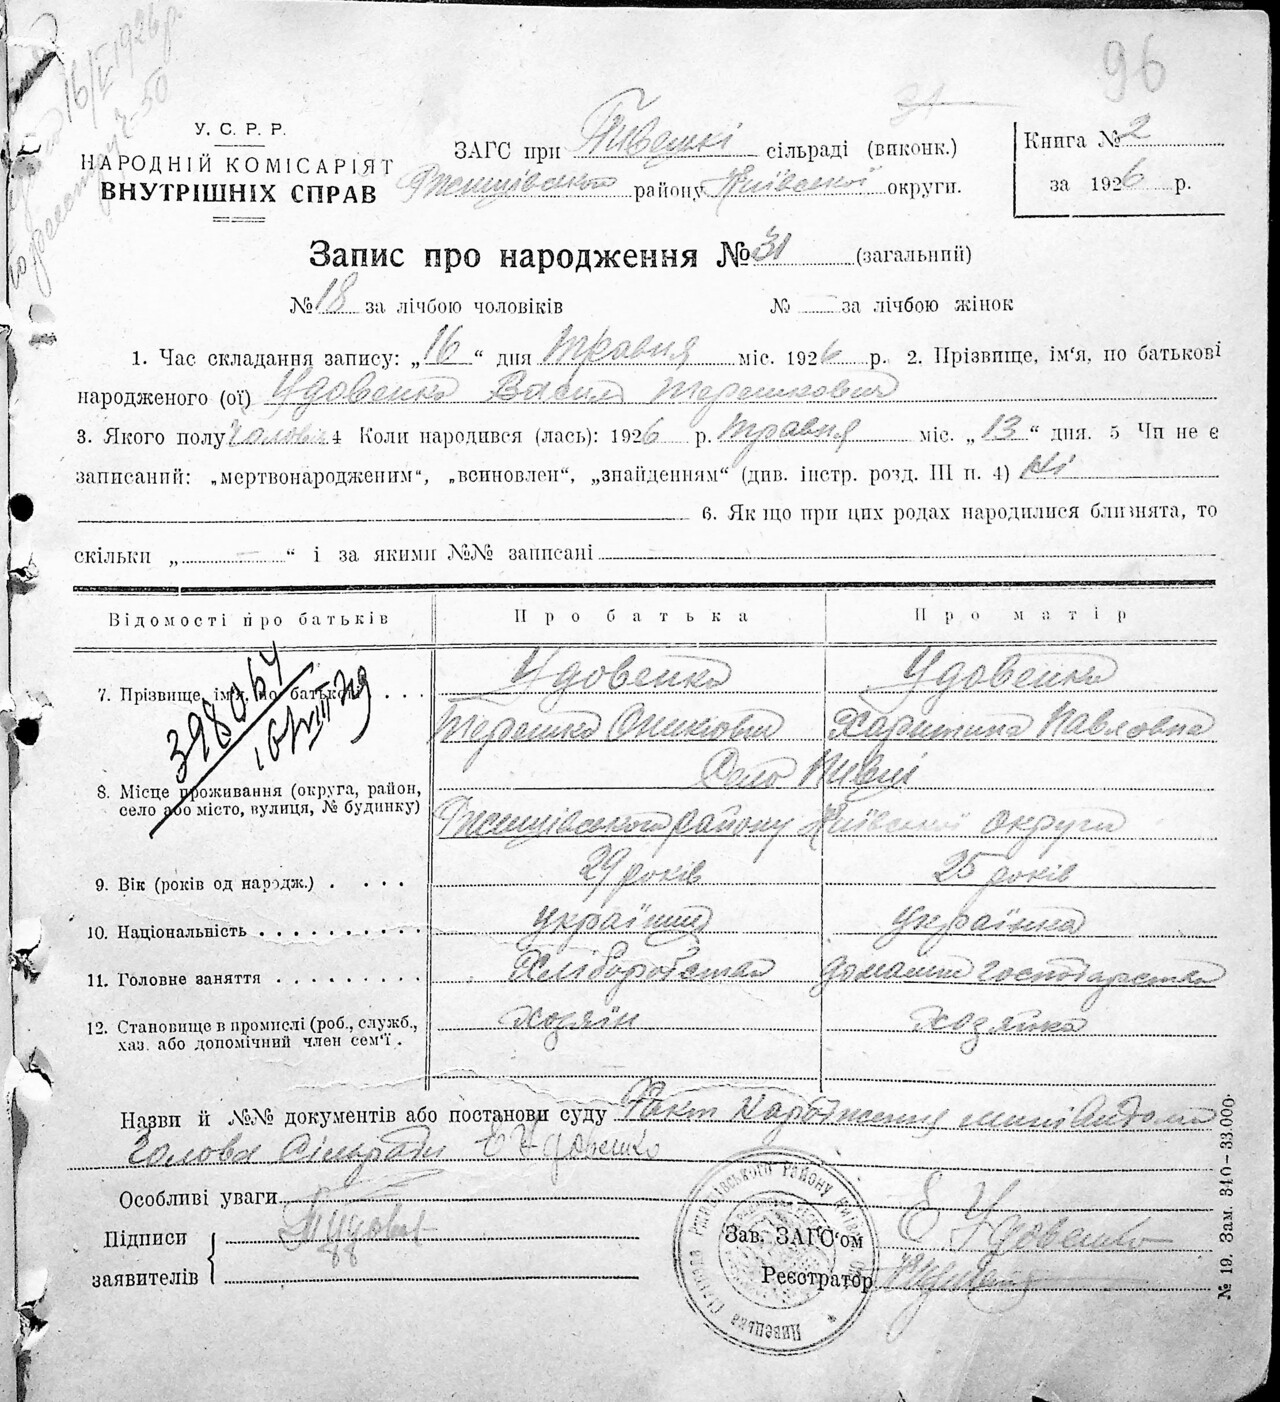 96
16/V 1926 р.
У. С. Р. Р.
НАРОДНІЙ КОМІСАРІЯТ
ВНУТРІШНІХ СПРАВ
ЗАГС при Пивецькі сільраді (виконк.)
Ржищівського району Київської округи.
Книга № 2
за 1926 р.
Запис про народження № 31 (загальний)
№ 18 за лічбою чоловіків № — за лічбою жінок
1. Час складання запису: „16“ дня травня міс. 1926 р. 2. Прізвище, ім‘я, по батькові
народженого (ої) Удовенко Василь Терешкович
3. Якого полу Чоловіч 4 Коли народився (лась): 1926 р. травня міс. „13“ дня. 5 Чи не є
записаний: „мертвонародженим“, „всиновлен“, „знайденням“ (див. інстр. розд. III п. 4) Ні
6. Якщо при цих родах народилися близнята, то
скільки „ — “ і за якими №№ записані
Відомості про батьків Про батька Про матір
7. Прізвище, ім‘я, по батькові . . . Удовенко Удовенко
Терешко Оникович Харитина Павловна
398064
16/VIII 29
8. Місце проживання (округа, район,
село або місто, вулиця, № будинку)
Село Півці
Ржищівського району Київської округи
9. Вік (років од народж.) . . . . 29 років 25 років
10. Національність . . . . . . . . . . українець українка
11. Головне заняття . . . . . . . . . Хліборобства домашне господарство
12. Становище в промислі (роб., служб.,
хаз. або допомічний член сем‘ї . хозяїн хозяйка
Назви й №№ документів або постанови суду Факт народження мині відомо
Голова Сільради Є Удовенко
Особливі уваги
Підписи
заявителів
Зав. ЗАГС‘ом Є Удовенко
Реєстратор
№ 19. Зам. 310—33.000